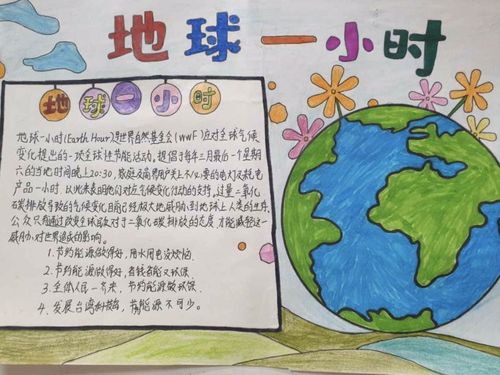 地球一小时
地球一小时
地球一小时(Earth Hour)是世界自然基金会(WWF)应对全球气候
变化提出的一项全球性节能活动,提倡于每年三月最后一个星期
六的当地时间晚上20:30,家庭及商界用户关上不必要的电灯及耗电
产品一小时,以此来表明他们对应气候变化行动的支持,过量二氧化
碳排放导致的气候变化目前已经极大地威胁到地球上人类的生存,
公众只有通过改变全球民众对于二氧化碳排放的态度,才能减轻这一
威胁对世界造成的影响。
1.节约能源做得好,用水用电没烦恼.
2.节约能源做得好,省钱省能又环保.
3.全体人民一齐来,节约能源做环保.
4.发展 节能源不可少。